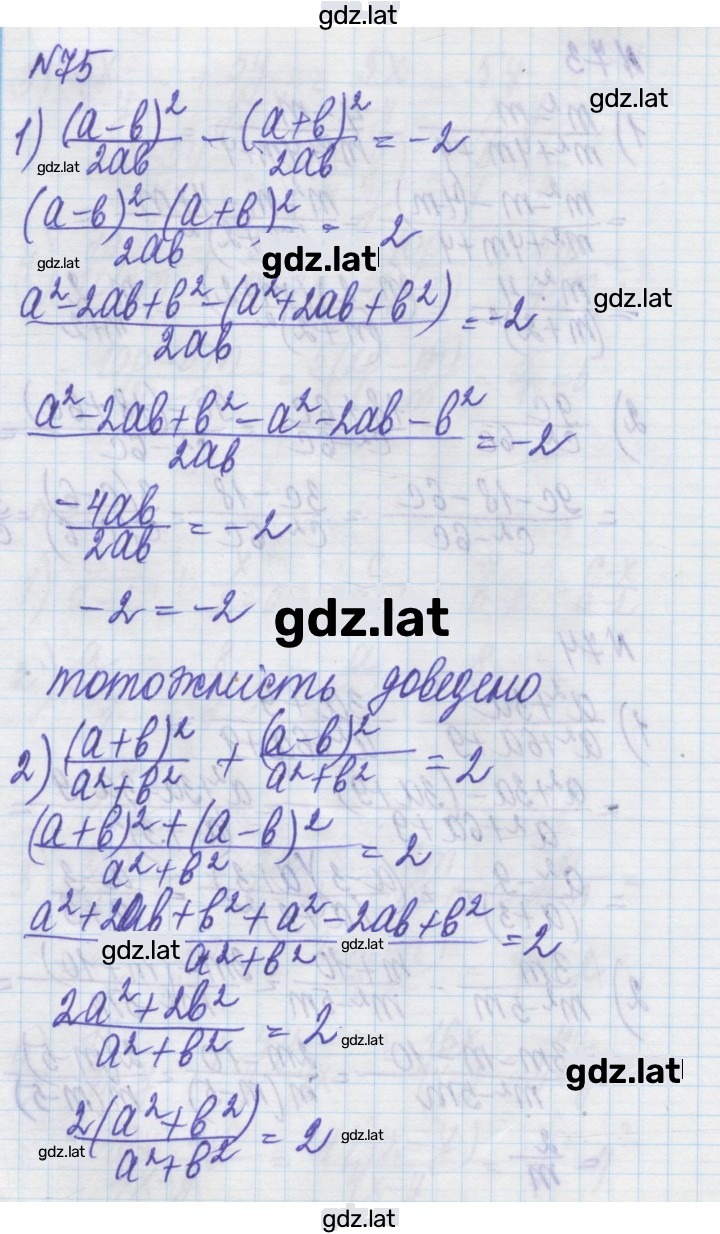 gdz.lat
N75
gdz.lat
1) (a-b)²/2ab - (a+b)²/2ab = -2
gdz.lat
(a-b)²-(a+b)²/2ab = -2
gdz.lat
gdz.lat
a²-2ab+b²-(a²+2ab+b²)/2ab = -2
gdz.lat
a²-2ab+b²-a²-2ab-b²/2ab = -2
-4ab/2ab = -2
-2 = -2
gdz.lat
тотожність доведено
2) (a+b)²/a²+b² + (a-b)²/a²+b² = 2
(a+b)²+(a-b)²/a²+b² = 2
a²+2ab+b²+a²-2ab+b²/a²+b² = 2
gdz.lat
gdz.lat
2a²+2b²/a²+b² = 2
gdz.lat
gdz.lat
2(a²+b²)/a²+b² = 2
gdz.lat
gdz.lat
gdz.lat